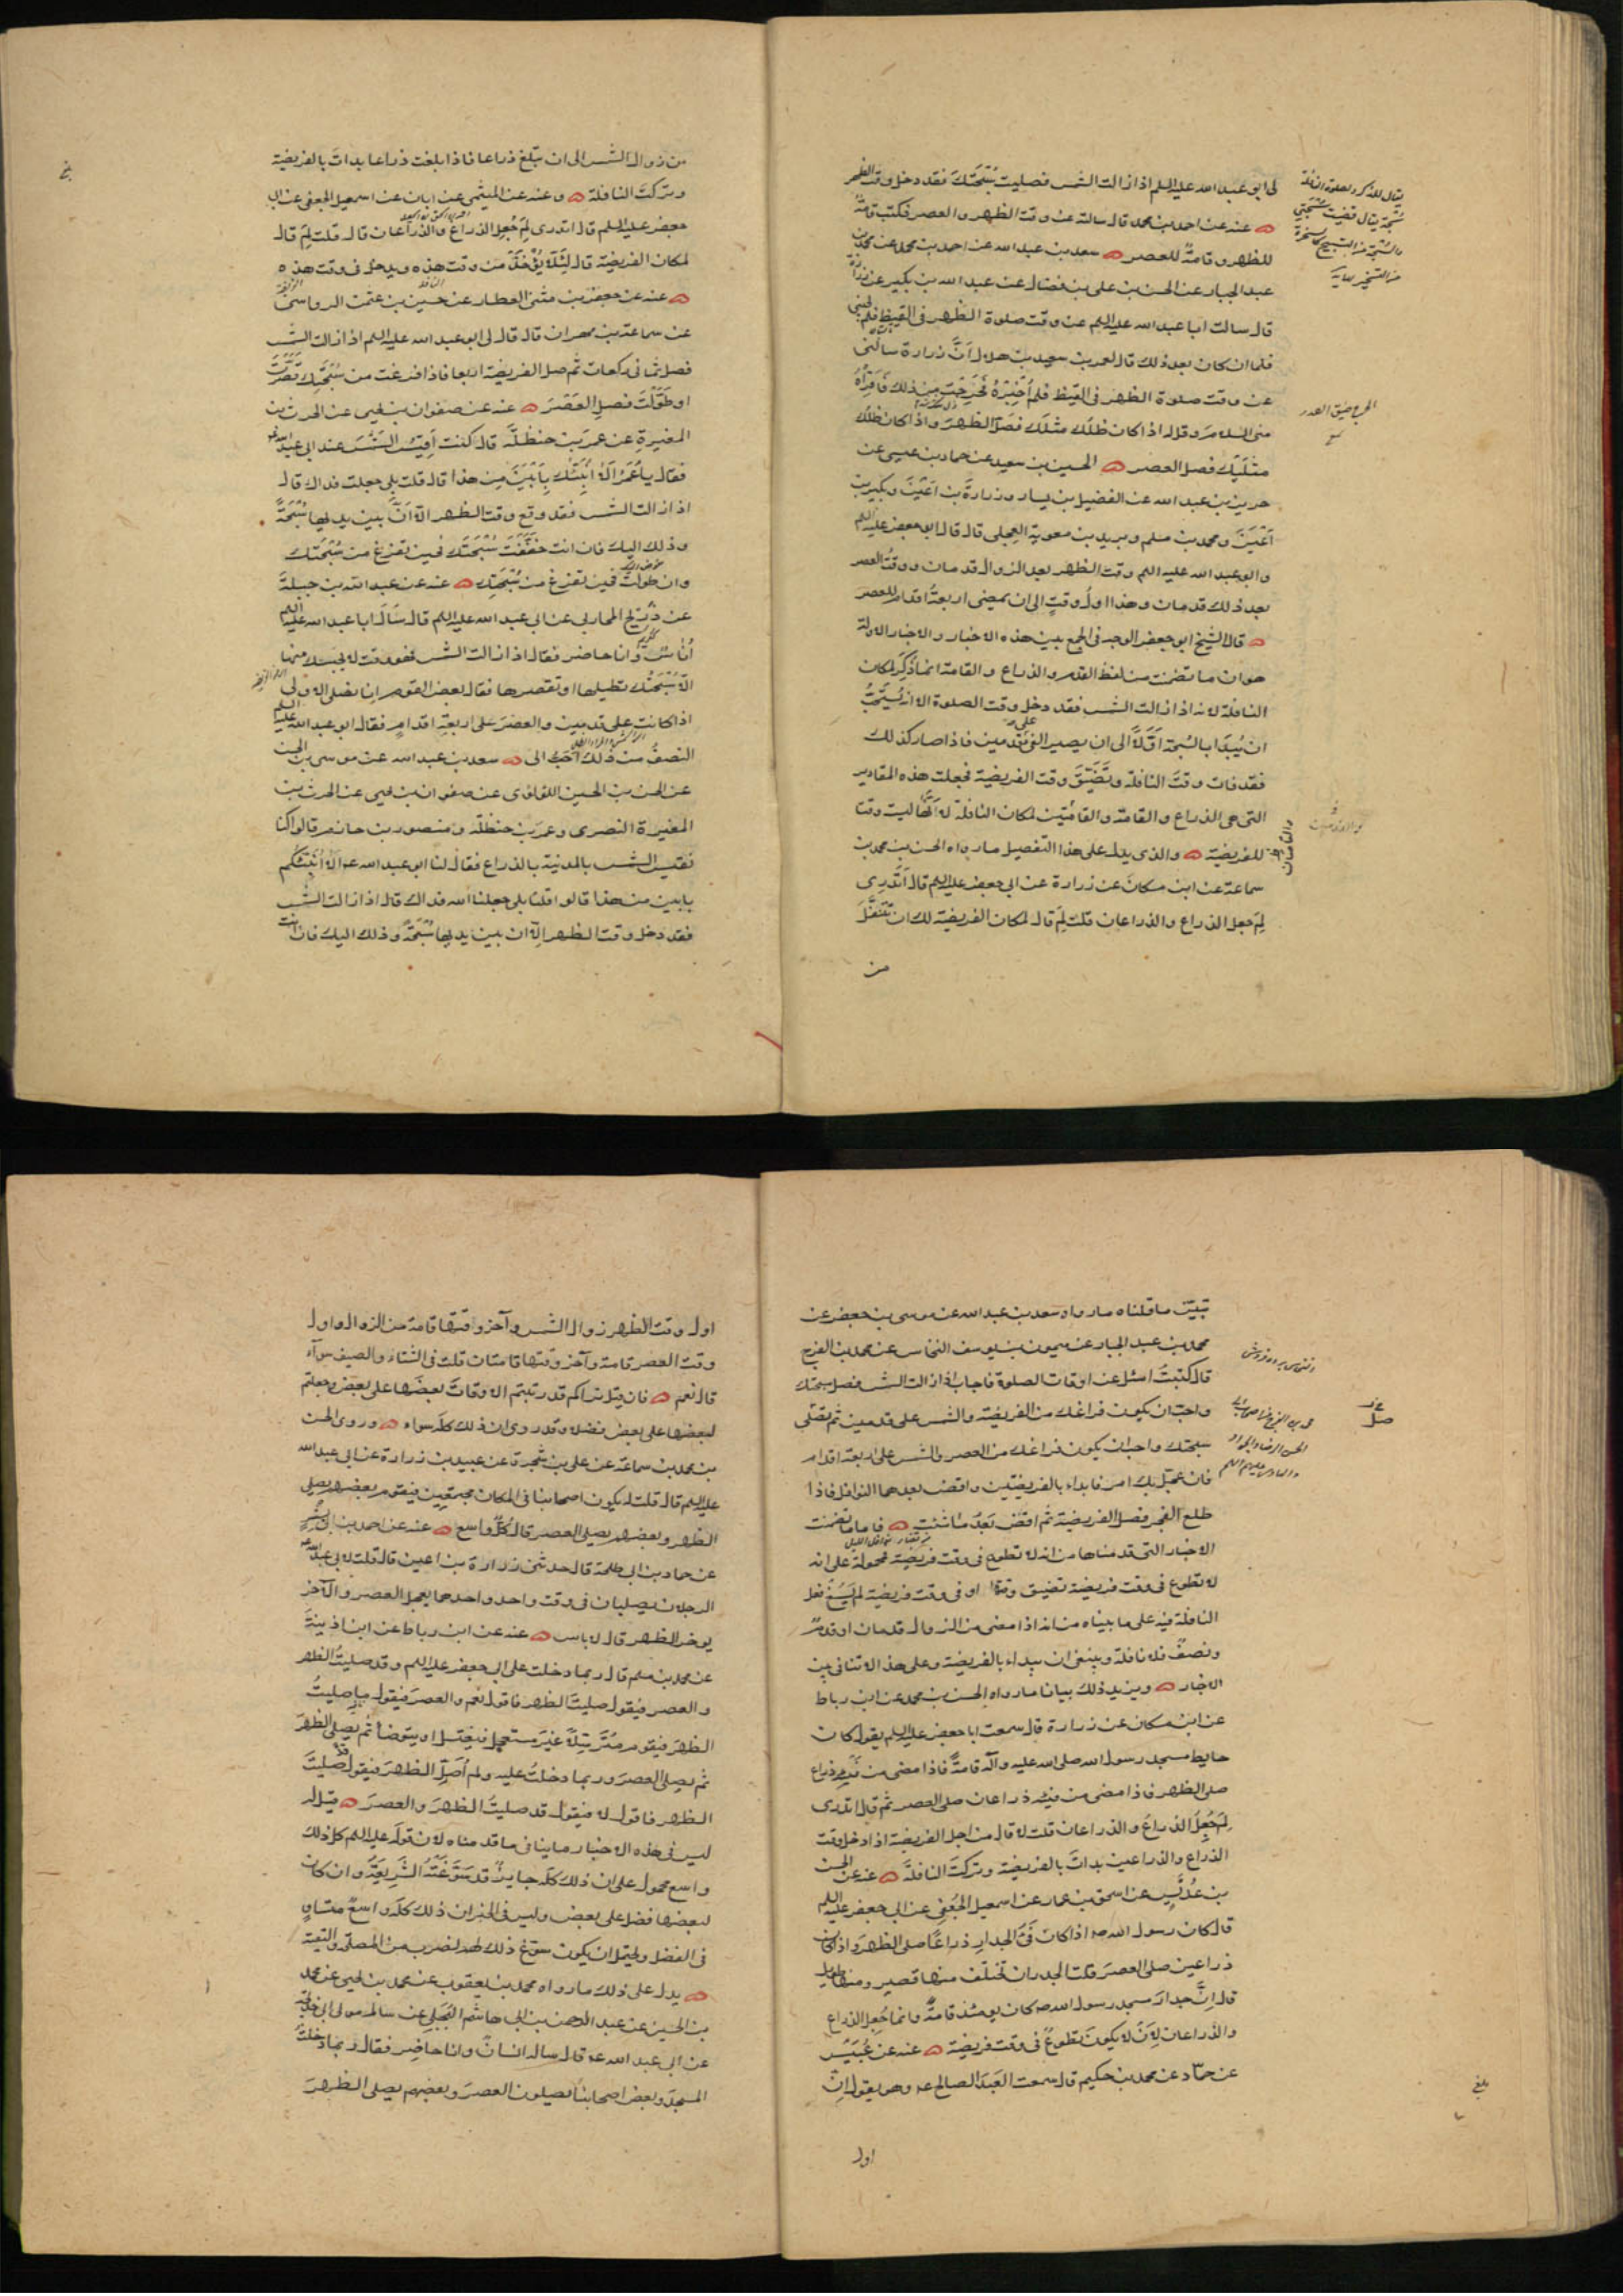 لى ابو عبد الله عليه السلم اذا زالت الشمس فصليت سُبْحَتَكَ فقد دخل وقت الظهر
عنه عن احمد بن محمد قال سالته عن وقت الظهر و العصر فكتب قامةٌ
للظهر و قامةٌ للعصر سعد بن عبد الله عن احمد بن محمد عن محمد بن
عبد الجبار عن الحسن بن على بن فضال عن عبد الله بن بكير عن زرارة
قال سالت ابا عبد الله عليه السلم عن وقت صلوة الظهر فى القيظ فلم يجبنى
فلما ان كان بعد ذلك قال لعمر بن سعيد بن هلال اَنَّ زرارة سالنى
عن وقت صلوة الظهر فى القيظ فلم اُخْبِرْهُ فَحَرِجْتُ مِن ذلك فَاَقْرِأْهُ
منى السلام و قل له اذا كان ظلك مثلك فصلّ الظهر و اذا كان ظلك
مثليك فصل العصر الحسين بن سعيد عن حماد بن عيسى عن
حريز بن عبد الله عن الفضيل بن يسار و زرارة بن اَعْيَنَ و بكير بن
اَعْيَنَ و محمد بن مسلم و بريد بن معوية العِجلى قال قال ابو جعفر عليه السلم
و ابو عبد الله عليه السلم وقت الظهر بعد الزوال قدمان و وقتُ العصر
بعد ذلك قدمان و هذا اولُ وقتٍ الى ان يمضى اربعةُ اقدام للعصر
قال الشيخ ابو جعفر الوجه فى الجمع بين هذه الاخبار و الاخبار الاولة
هو ان ما تضمنت من لفظ القدم و الذراع و القامة انما ذُكِرَ لمكان
النافلة لانه اذا زالت الشمس فقد دخل وقت الصلوة الا انه يُسْتَحَبُّ
ان يُبدَا بالسُبحة اَوَّلًا الى ان يصير الفئ على قدمين فاذا صار كذلك
فقد فات وقتَ النافلة و تَضَيَّقَ وقت الفريضة فجعلت هذه المقادير
التى هى الذراع و القامة و القامَتَين لمكان النافلة لا اَنَّها ليست وقتا
للفريضة و الذى يدل على هذا التفصيل ما رواه الحسن بن محمد بن
سماعة عن ابن مسكان عن زرارة عن ابى جعفر عليه السلم قال اَتَدْرِى
لِمَ جعل الذراع و الذراعان قلت لِمَ قال لمكان الفريضة لك ان تَتَنَفَّلَ
من
يقال للذكر و لصلوة النافلة
سُبحة يقال قضيت سُبحتى
الحرج ضيق الصدر
من زوال الشمس الى ان تبلغ ذراعا فاذا بلغت ذراعا بدات بالفريضة
و تركت النافلة و عنه عن الميثمى عن ابان عن اسمعيل الجعفى عن ابى
جعفر عليه السلم قال اتدرى لِمَ جُعِل الذراع و الذراعان قال قلت لِمَ قال
لمكان الفريضة قال لِئَلَّا يُؤْخَذَ من وقت هذه و يدخل فى وقت هذه
عنه عن جعفر بن مثنى العطار عن حسين بن عثمن الرواسى
عن سماعة بن مهران قال قال لى ابو عبد الله عليه السلم اذا زالت الشمس
فصل ثمانى ركعات ثم صل الفريضة اربعا فاذا فرغت من سُبْحَتِك قَصَّرْتَ
او طَوَّلْتَ فصلِ العَصْرَ عنه عن صفوان بن يحيى عن الحرث بن
المغيرةِ عن عمر بن حنظلة قال كنت اَقِيسُ الشمس عند ابى عبد الله عليه
فقال يا عُمَرُ اَلَا اُنَبِّئُكَ بِاَبْيَنَ مِن هذا قال قلت بلى جعلت فداك قال
اذا زالت الشمس فقد وقع وقت الظهر الا اَنَّ بين يديها سُبْحَةً
و ذلك اليك فان انت خفَّفْتَ سُبْحَتَك فحين تفرغ من سُبْحَتك
و ان طولت فحين تفرغ من سُبْحَتِك عنه عن عبد الله بن جبلةَ
عن ذُرَيْح المحاربى عن ابى عبد الله عليه السلم قال سَاَلَ ابا عبد الله عليه السلم
اُناسٌ و انا حاضر فقال اذا زالت الشمس فهو وقت لا يحبسك منها
الا سُبْحَتُك تطيلها او تقصرها فقال بعض القوم اِنا نصلى الاولى
اذا كانت على قدمين و العصرَ على اربعةِ اقدام فقال ابو عبد الله عليه السلم
النصفُ من ذلك اَحَبُّ الى سعد بن عبد الله عن موسى بن الحسن
عن الحسن بن الحسين اللؤلؤى عن صفوان بن يحيى عن الحرث بن
المغيرة النصرى و عمر بن حنظلة و منصور بن حازم قالوا كنا
نقيس الشمس بالمدينة بالذراع فقال لنا ابو عبد الله عه الا اُنَبِّئكم
بابين من هذا قالوا قلنا بلى جعلنا الله فداك قال اذا زالت الشمس
فقد دخل وقت الظهر الا ان بين يديها سُبْحَةً و ذلك اليك فان انت
تبيّن ما قلناه ما رواه سعد بن عبد الله عن موسى بن جعفر عن
محمد بن عبد الجبار عن ميمون بن يوسف النخاس عن محمد بن الفرج
قال كتبتُ اسئل عن اوقات الصلوة فاجاب اذا زالت الشمس فصل سبحتك
و احبّ ان يكون فراغك من الفريضة و الشمس على قدمين ثم تصلى
سبحتك و احب ان يكون فراغك من العصر و الشمس على اربعة اقدام
فان عجّل بك امر فابداء بالفريضتين و اقض بعدهما النوافل فاذا
طلع الفجر فصل الفريضة ثم اقض بَعْدُ ما شئت فاما ما تضمنت
الاخبار التى قدمناها من انه لا تطوع فى وقت فريضة محمولة على انه
لا تطوع فى وقت فريضة تضيق وقتها او فى وقت فريضة لم يَسُغْ فعل
النافلة فيه على ما بيناه من انه اذا مضى من الزوال قدمان او قدمٌ
و نصفٌ فلا نافلة و ينبغى ان يبداء بالفريضة و على هذا لا تنافى بين
الاخبار و يزيد ذلك بيانا ما رواه الحسن بن محمد عن ابن رباط
عن ابن مسكان عن زرارة قال سمعت ابا جعفر عليه السلم يقول كان
حايط مسجد رسول الله صلى الله عليه و آله قامةً فاذا مضى من فَيْئِهِ ذراع
صلى الظهر فاذا مضى من فيئه ذراعان صلى العصر ثم قال اتدرى
لِمَ جُعِلَ الذراعُ و الذراعان قلت لا قال من اجل الفريضة اذا دخل وقت
الذراع و الذراعين بداتَ بالفريضة و تركتَ النافلةَ عنه عن الحسن
بن عُدَيْسٍ عن اسحق بن عمار عن اسمعيل الجُعْفِى عن ابى جعفر عليه السلم
قال كان رسول الله صه اذا كان فَئُ الجدارِ ذراعًا صلى الظهرَ و اذا كان
ذراعين صلى العصرَ قلت الجدران تختلف منها قصير و منها طويل
قال اِنَّ جدارَ مسجد رسول الله صه كان يومئذ قامةً و انما جُعِلَ الذراع
و الذراعان لِاَنْ لا يكونَ تطوعٌ فى وقت فريضة عنه عن عُبَيْسٍ
عن حمّاد عن محمد بن حكيم قال سمعت العَبْدَ الصالح عه و هو يقول اِنّ
اول
بلغ
اول وقت الظهر زوال الشمس و آخر وقتها قامة من الزوال و اول
وقت العصر قامة و آخر وقتها قامتان قلت فى الشتاء و الصيف سوآء
قال نعم فان قيل نراكم قد رتبتم الاوقاتَ بعضَها على بعض و جعلتم
لبعضها على بعض فضلا و قد روى ان ذلك كله سواء و روى الحسن
بن محمد بن سماعة عن على بن شجرة عن عبيد بن زرارة عن ابى عبد الله
عليه السلم قال قلت له يكون اصحابنا فى المكان مجتمعين فيقوم بعضهم يصلى
الظهر و بعضهم يصلى العصر قال كُلٌّ واسع عنه عن احمد بن ابى بِشْرٍ
عن حماد بن ابى طلحة قال حدثنى زرارة بن اعين قال قلت لابى عبد الله عه
الرجلان يصليان فى وقت واحد و احدهما يعجل العصر و الآخر
يوخر الظهر قال لا باس عنه عن ابن رباط عن ابن اذينةَ
عن محمد بن مسلم قال ربما دخلت على ابى جعفر عليه السلم و قد صليتُ الظهر
و العصر فيقول صليتَ الظهر فاقول نعم و العصرَ فيقول ما صليتُ
الظهرَ فيقوم مُتَرَسِّلًا غيرَ مستعجل فيغتسل او يتوضأ ثم يصلى الظهرَ
ثم يصلى العصرَ و ربما دخلتُ عليه و لم اُصَلِّ الظهرَ فيقول قد صليتَ
الظهر فاقول لا فيقول قد صليتُ الظهرَ و العصرَ قيل له
ليس فى هذه الاخبار ما ينافى ما قدمناه لان قولَه عليه السلم كل ذلك
واسع محمول على ان ذلك كله جايزٌ قد سَوَّغَتْهُ الشَّرِيعَةُ و ان كان
لبعضها فضل على بعض و ليس فى الخبر ان ذلك كلَه واسعٌ متساوٍ
فى الفضل و يحتمل ان يكون سوّغ ذلك لهم لضرب من المصلحة و التقية
يدل على ذلك ما رواه محمد بن يعقوب عن محمد بن يحيى عن محمد
بن الحسين عن عبد الرحمن بن ابى هاشم البَجَلِى عن سالم مولى ابى خديجة
عن ابى عبد الله عه قال ساله انسانٌ و انا حاضِر فقال ربما دخلتُ
المسجدَ و بعضُ اصحابنا يصلون العصرَ و بعضهم يصلى الظهرَ